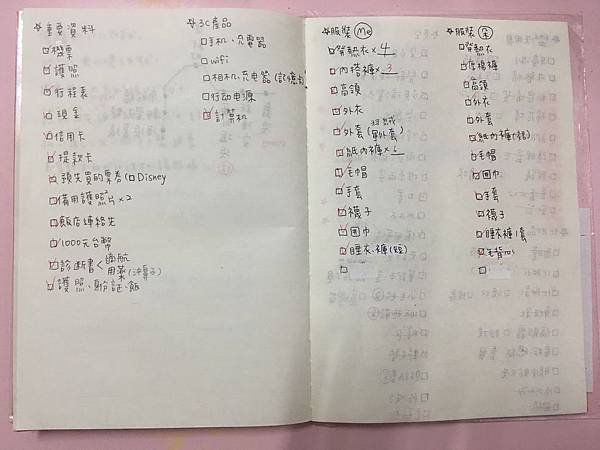 重要資料
機票
護照
行程表
現金
信用卡
提款卡
預先買的票券(□ Disney
備用護照片×2
飯店連絡先
1000元台幣
診斷書<適航
用藥
護照、身份証、飯
3C產品
手机、充電器
wifi
相机、充电器(記憶卡)
行动电源
計算机
服裝 Me
發熱衣×4
內搭褲×3
高領
外衣
外套(羽絨
外套)
紙內褲×6
毛帽
手套
襪子
圍巾
睡衣、褲(短)
服裝
發熱衣
高領
外衣
外套
紙內褲
毛帽
圍巾
手套
襪子
睡衣褲1套
毛背心